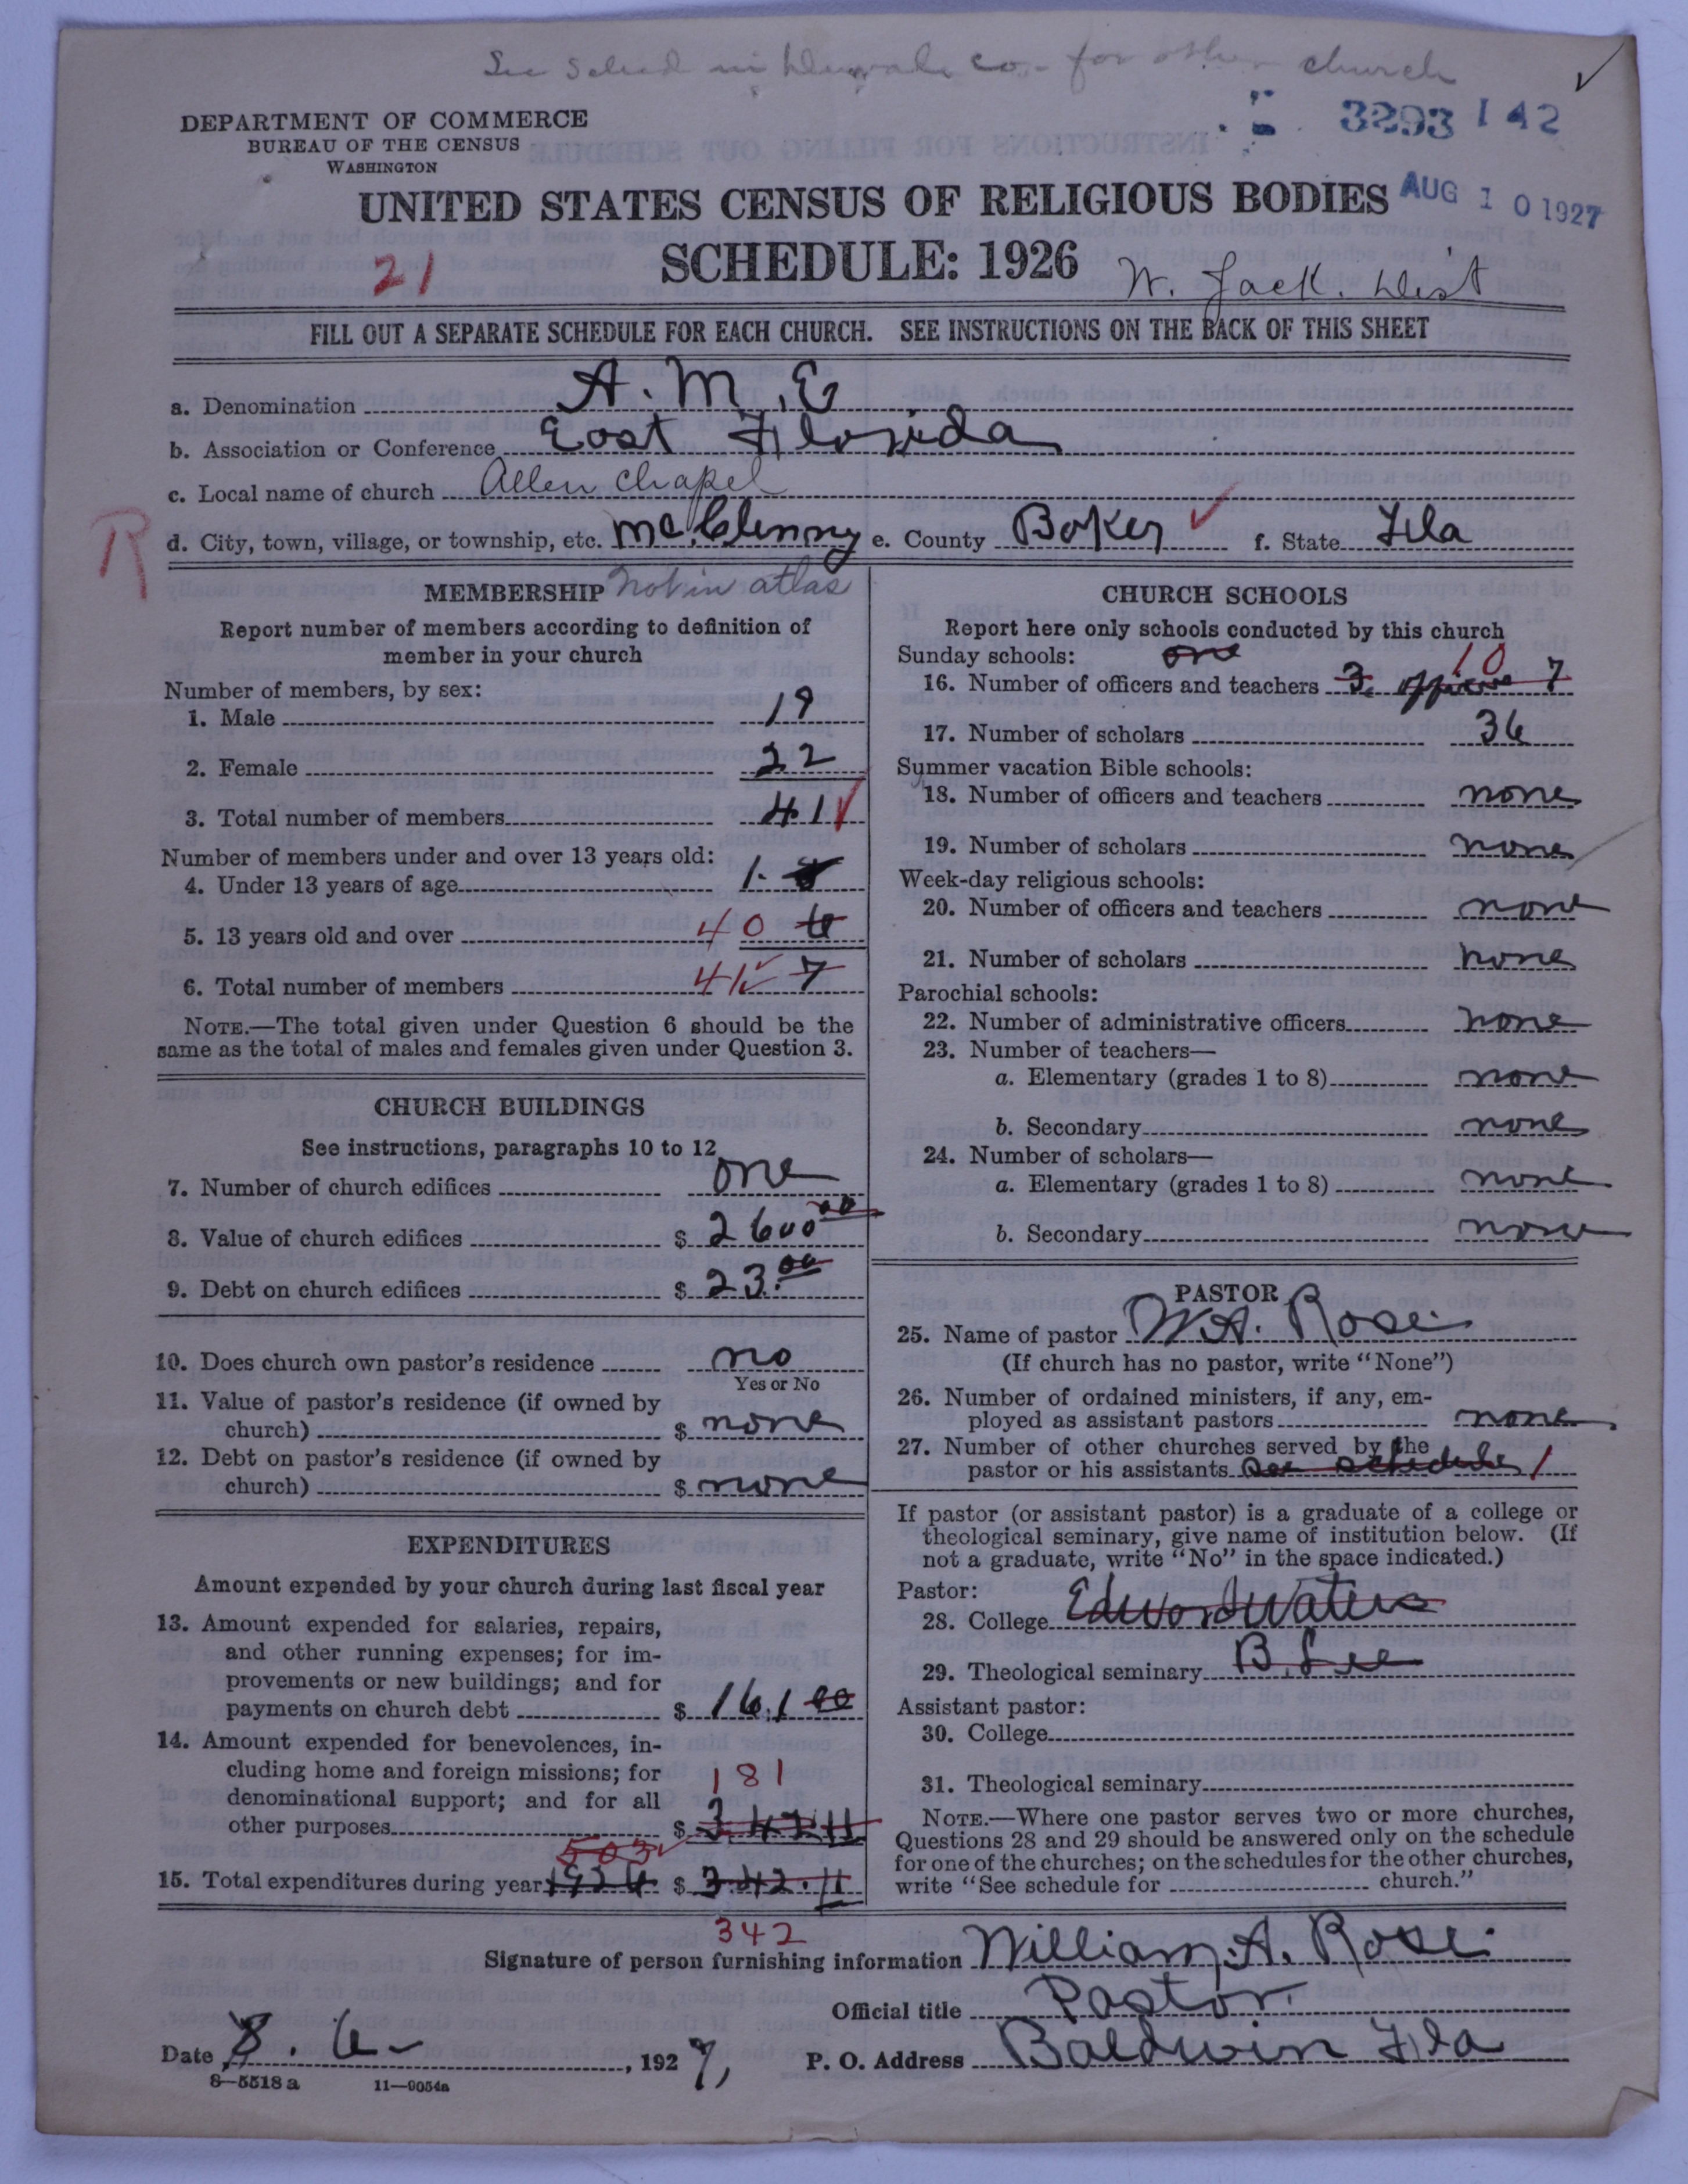 See Sched in co. for other church
3293 142
DEPARTMENT OF COMMERCE
BUREAU OF THE CENSUS
WASHINGTON
UNITED STATES CENSUS OF RELIGIOUS BODIES
AUG 10 1927
SCHEDULE: 1926
21
W. Jack. Dist
FILL OUT A SEPARATE SCHEDULE FOR EACH CHURCH. SEE INSTRUCTIONS ON THE BACK OF THIS SHEET
a. Denomination A.M.E
b. Association or Conference East Florida
c. Local name of church Allen Chapel
R
d. City, town, village, or township, etc. McClenny e. County Baker f. State Fla
MEMBERSHIP Not in atlas
Report number of members according to definition of
member in your church
Number of members, by sex:
1. Male 19
2. Female 22
3. Total number of members 41
Number of members under and over 13 years old:
4. Under 13 years of age 1.
5. 13 years old and over 40 6
6. Total number of members 41 7
NOTE.—The total given under Question 6 should be the
same as the total of males and females given under Question 3.
CHURCH BUILDINGS
See instructions, paragraphs 10 to 12
7. Number of church edifices one
8. Value of church edifices $ 2600 00
9. Debt on church edifices $ 23.00
10. Does church own pastor's residence no
Yes or No
11. Value of pastor's residence (if owned by
church) $ none
12. Debt on pastor's residence (if owned by
church) $ none
EXPENDITURES
Amount expended by your church during last fiscal year
13. Amount expended for salaries, repairs,
and other running expenses; for im-
provements or new buildings; and for
payments on church debt $ 161 00
14. Amount expended for benevolences, in-
cluding home and foreign missions; for
denominational support; and for all
181
other purposes $ 342 11
503
15. Total expenditures during year 1926 $ 342.11
342
CHURCH SCHOOLS
Report here only schools conducted by this church
Sunday schools: one
10
16. Number of officers and teachers 3. officers 7
17. Number of scholars 36
Summer vacation Bible schools:
18. Number of officers and teachers none
19. Number of scholars none
Week-day religious schools:
20. Number of officers and teachers none
21. Number of scholars none
Parochial schools:
22. Number of administrative officers none
23. Number of teachers—
a. Elementary (grades 1 to 8) none
b. Secondary none
24. Number of scholars—
a. Elementary (grades 1 to 8) none
b. Secondary none
PASTOR
25. Name of pastor W.A. Rose
(If church has no pastor, write "None")
26. Number of ordained ministers, if any, em-
ployed as assistant pastors none
27. Number of other churches served by the
pastor or his assistants See schedule 1
If pastor (or assistant pastor) is a graduate of a college or
theological seminary, give name of institution below. (If
not a graduate, write "No" in the space indicated.)
Pastor:
28. College Edward Waters
29. Theological seminary B. Lee
Assistant pastor:
30. College
31. Theological seminary
NOTE.—Where one pastor serves two or more churches,
Questions 28 and 29 should be answered only on the schedule
for one of the churches; on the schedules for the other churches,
write "See schedule for church."
Signature of person furnishing information William. A. Rose.
Official title Pastor.
Date 8. 6-, 1927, P. O. Address Baldwin Fla
8—5518 a 11—9054a